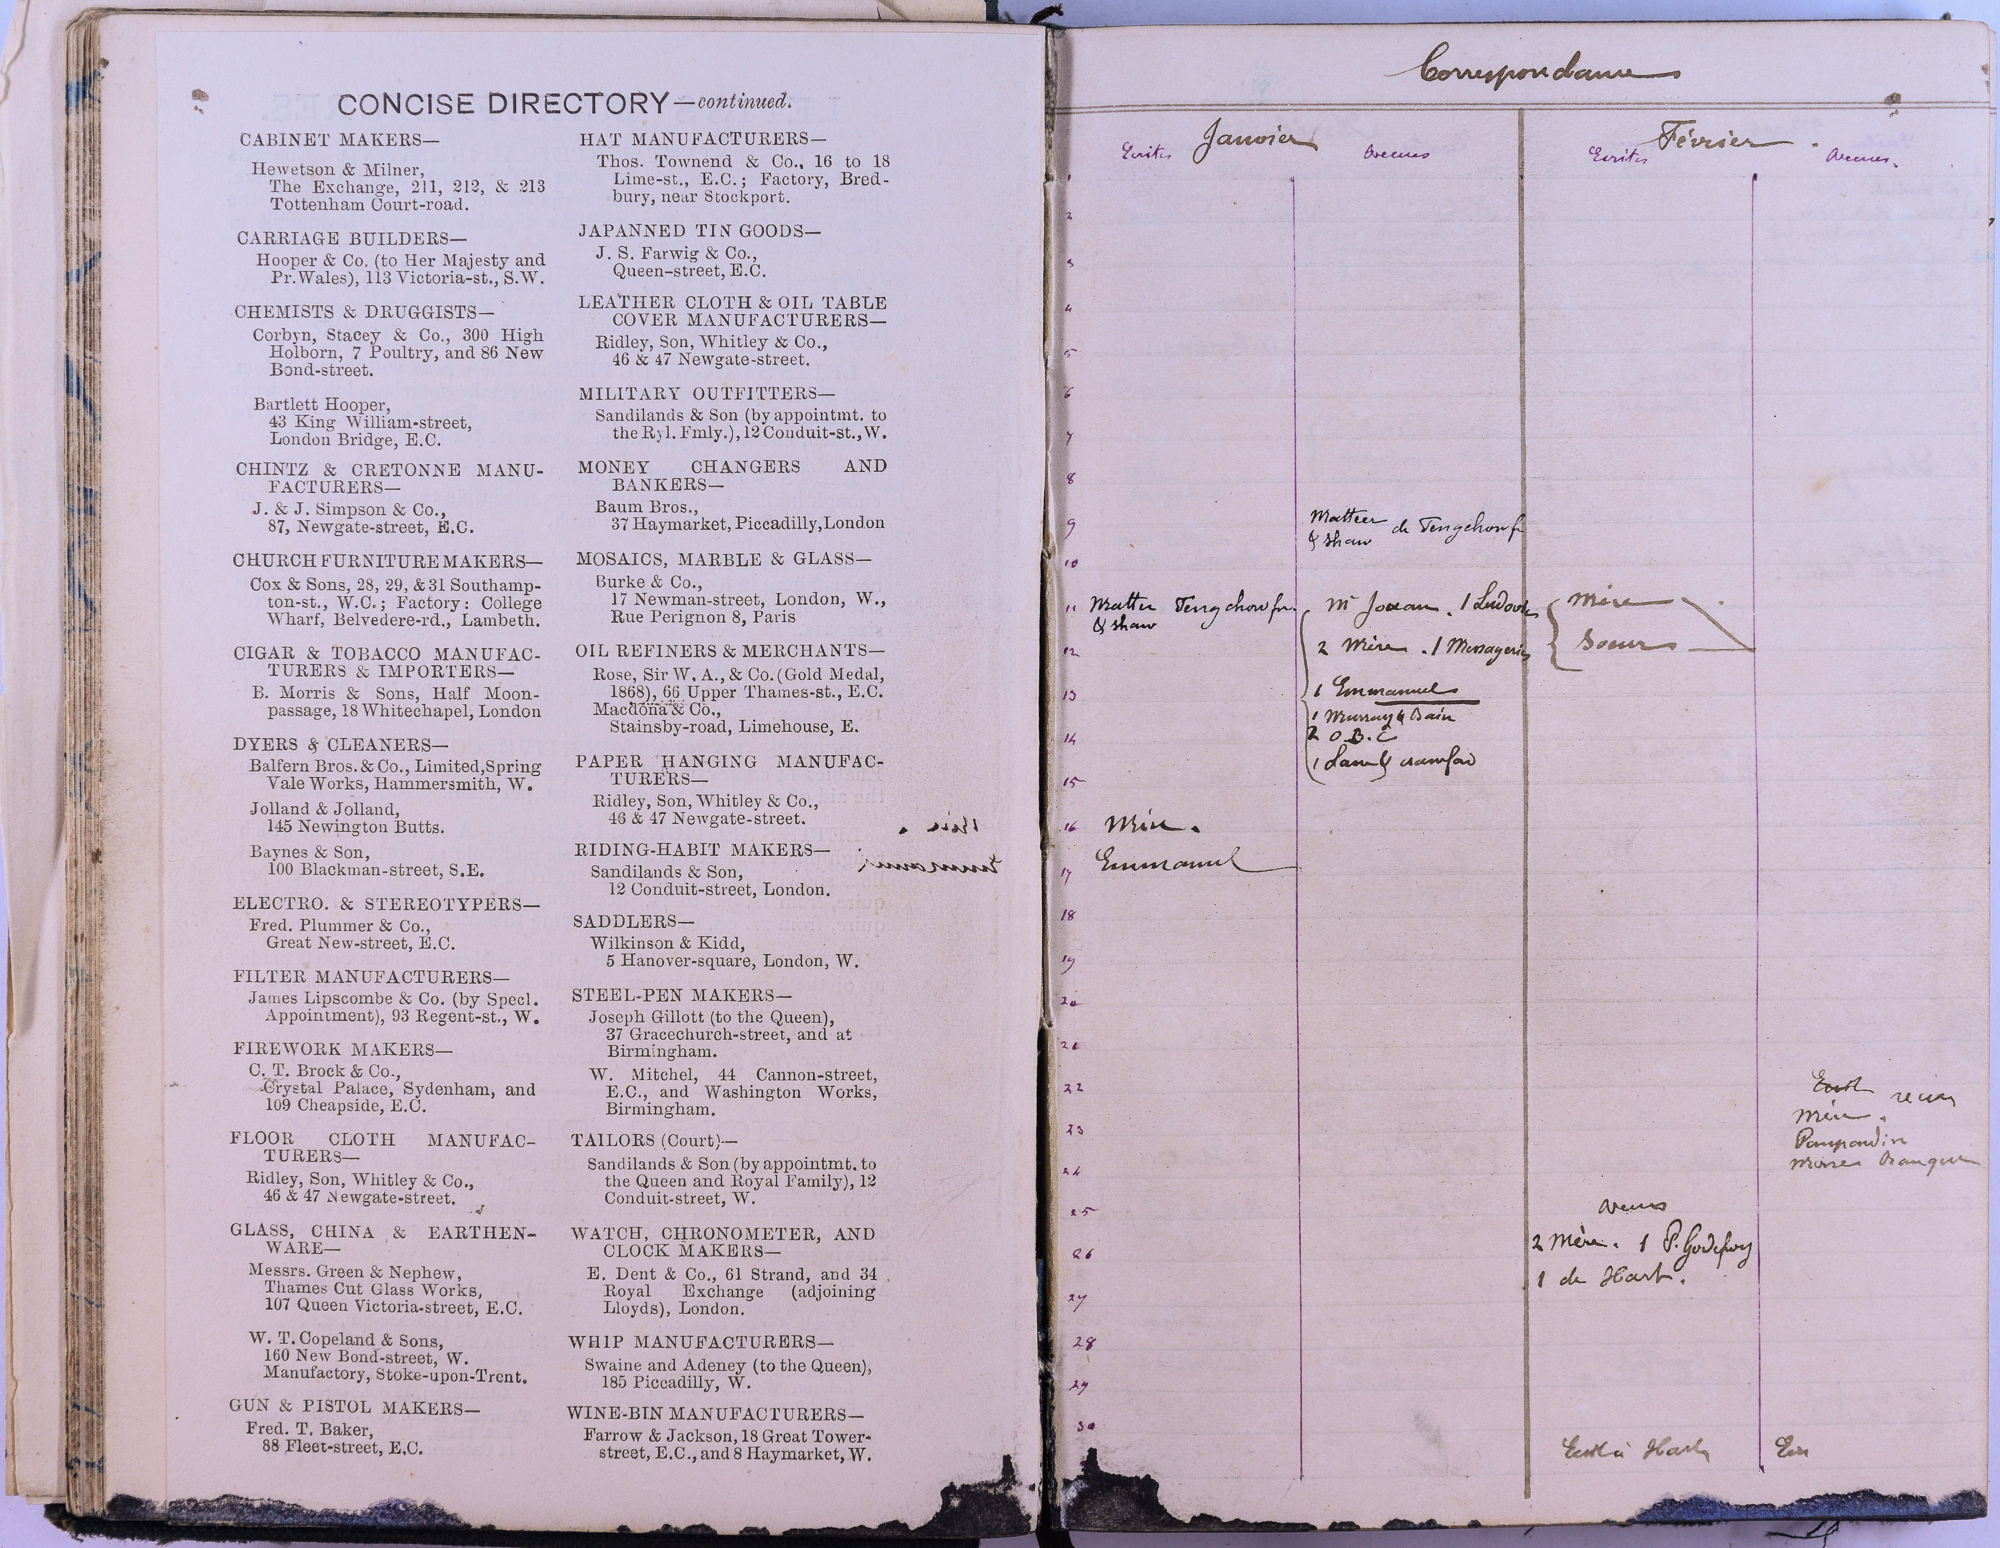 CONCISE DIRECTORY—continued.
CABINET MAKERS—
Hewetson & Milner,
The Exchange, 211, 212, & 213
Tottenham Court-road.
CARRIAGE BUILDERS—
Hooper & Co. (to Her Majesty and
Pr. Wales), 113 Victoria-st., S.W.
CHEMISTS & DRUGGISTS—
Corbyn, Stacey & Co., 300 High
Holborn, 7 Poultry, and 86 New
Bond-street.
Bartlett Hooper,
43 King William-street,
London Bridge, E.C.
CHINTZ & CRETONNE MANU-
FACTURERS—
J. & J. Simpson & Co.,
87, Newgate-street, E.C.
CHURCH FURNITURE MAKERS—
Cox & Sons, 28, 29, & 31 Southamp-
ton-st., W.C.; Factory: College
Wharf, Belvedere-rd., Lambeth.
CIGAR & TOBACCO MANUFAC-
TURERS & IMPORTERS—
B. Morris & Sons, Half Moon-
passage, 18 Whitechapel, London
DYERS & CLEANERS—
Balfern Bros. & Co., Limited, Spring
Vale Works, Hammersmith, W.
Jolland & Jolland,
145 Newington Butts.
Baynes & Son,
100 Blackman-street, S.E.
ELECTRO. & STEREOTYPERS—
Fred. Plummer & Co.,
Great New-street, E.C.
FILTER MANUFACTURERS—
James Lipscombe & Co. (by Specl.
Appointment), 93 Regent-st., W.
FIREWORK MAKERS—
C. T. Brock & Co.,
Crystal Palace, Sydenham, and
109 Cheapside, E.C.
FLOOR CLOTH MANUFAC-
TURERS—
Ridley, Son, Whitley & Co.,
46 & 47 Newgate-street.
GLASS, CHINA & EARTHEN-
WARE—
Messrs. Green & Nephew,
Thames Cut Glass Works,
107 Queen Victoria-street, E.C.
W. T. Copeland & Sons,
160 New Bond-street, W.
Manufactory, Stoke-upon-Trent.
GUN & PISTOL MAKERS—
Fred. T. Baker,
88 Fleet-street, E.C.
HAT MANUFACTURERS—
Thos. Townend & Co., 16 to 18
Lime-st., E.C.; Factory, Bred-
bury, near Stockport.
JAPANNED TIN GOODS—
J. S. Farwig & Co.,
Queen-street, E.C.
LEATHER CLOTH & OIL TABLE
COVER MANUFACTURERS—
Ridley, Son, Whitley & Co.,
46 & 47 Newgate-street.
MILITARY OUTFITTERS—
Sandilands & Son (by appointmt. to
the Ryl. Fmly.), 12 Conduit-st., W.
MONEY CHANGERS AND
BANKERS—
Baum Bros.,
37 Haymarket, Piccadilly, London
MOSAICS, MARBLE & GLASS—
Burke & Co.,
17 Newman-street, London, W.,
Rue Perignon 8, Paris
OIL REFINERS & MERCHANTS—
Rose, Sir W. A., & Co. (Gold Medal,
1868), 66 Upper Thames-st., E.C.
Macdona & Co.,
Stainsby-road, Limehouse, E.
PAPER HANGING MANUFAC-
TURERS—
Ridley, Son, Whitley & Co.,
46 & 47 Newgate-street.
RIDING-HABIT MAKERS—
Sandilands & Son,
12 Conduit-street, London.
SADDLERS—
Wilkinson & Kidd,
5 Hanover-square, London, W.
STEEL-PEN MAKERS—
Joseph Gillott (to the Queen),
37 Gracechurch-street, and at
Birmingham.
W. Mitchel, 44 Cannon-street,
E.C., and Washington Works,
Birmingham.
TAILORS (Court)—
Sandilands & Son (by appointmt. to
the Queen and Royal Family), 12
Conduit-street, W.
WATCH, CHRONOMETER, AND
CLOCK MAKERS—
E. Dent & Co., 61 Strand, and 34
Royal Exchange (adjoining
Lloyds), London.
WHIP MANUFACTURERS—
Swaine and Adeney (to the Queen),
185 Piccadilly, W.
WINE-BIN MANUFACTURERS—
Farrow & Jackson, 18 Great Tower-
street, E.C., and 8 Haymarket, W.
Correspondance
Janvier Février
Ecrites Ecrites
1
2
3
4
5
6
7
8
9 de Tengchowfu
& Shaw
10
11 Tengchowfu Mère
& Shaw
12 2 Mère. 1 Messageries Soeur
13 1 Emmanuel
1 Murray & Bain
14 2 O.B.C
1 Lane & Crawford
15
16 Mère.
17 Emmanuel
18
19
20
21
22
23 Mère.
24
25
26 2 Mère. 1 P. Godefroy
1 de Hart.
27
28
29
30
Ecrit à Hart